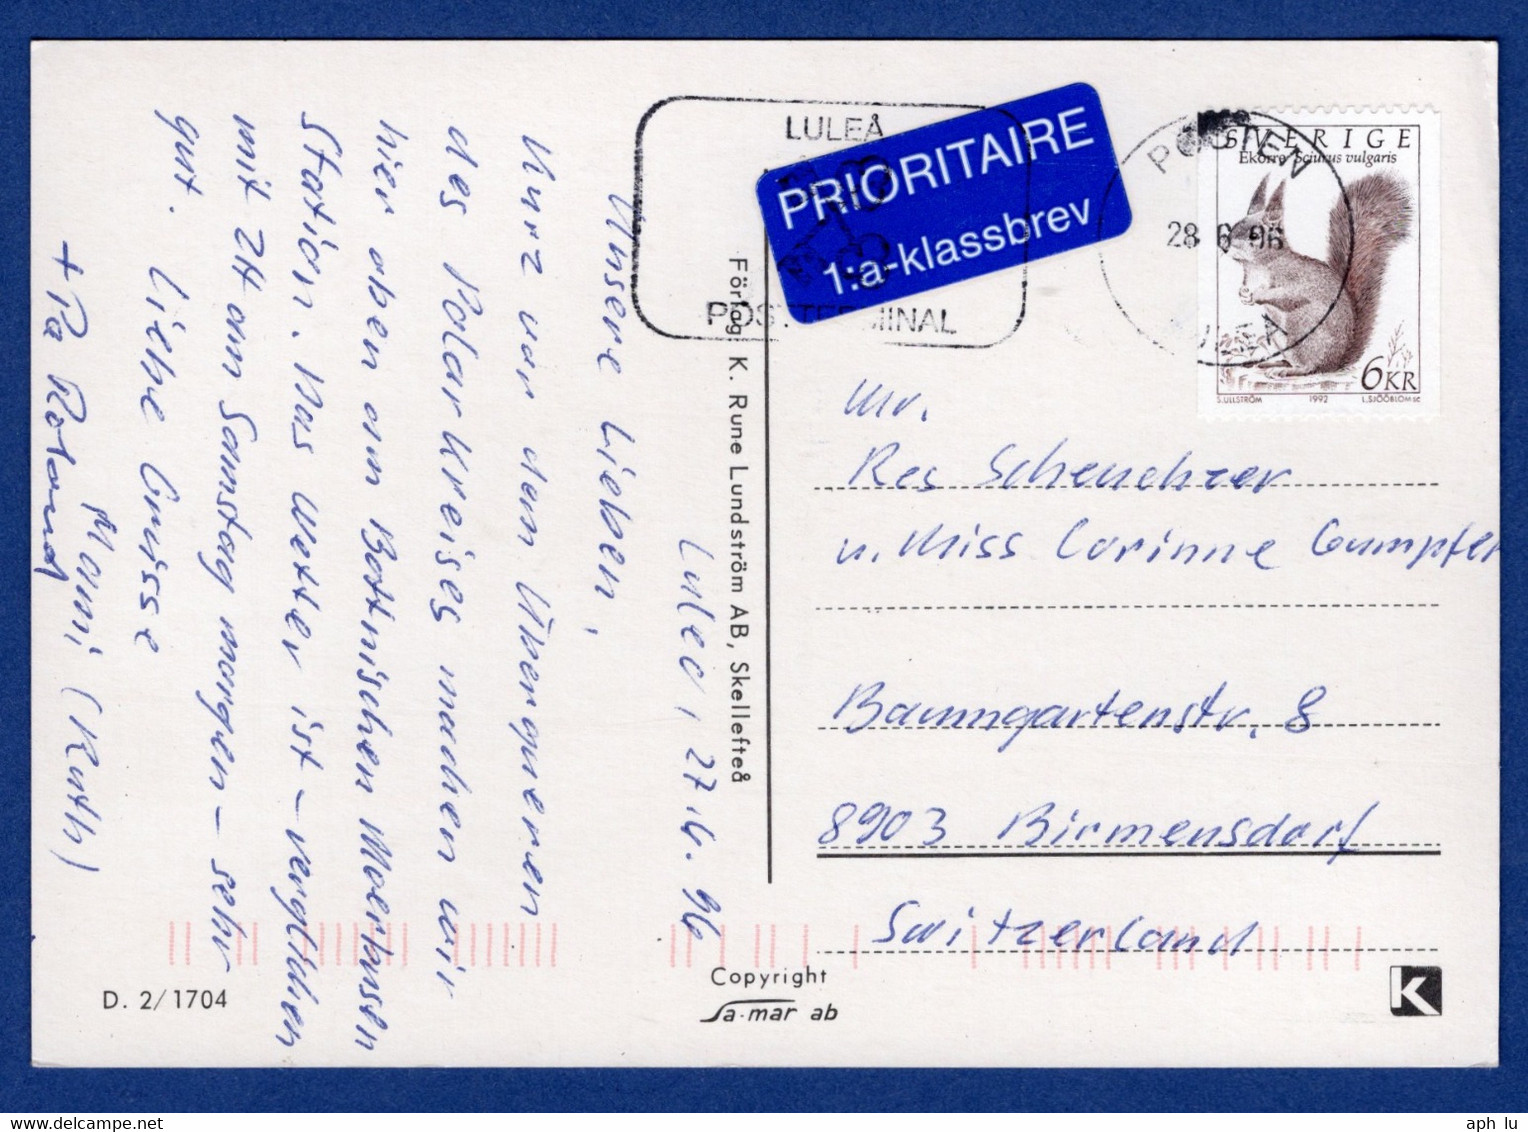 Luleå, 27.6.96
Unsere Lieben,
Kurz vor dem Überqueren
des Polarkreises machen wir
hier oben am Bottnischen Meerbusen
Station. Das Wetter ist - verglichen
mit ZH am Samstag morgen - sehr
gut. Liebe Grüsse
Mami (Ruth)
+ Pa Roland
D. 2/1704
Förlag K. Rune Lundström AB, Skellefteå
Copyright
Sa-mar ab
LULEÅ
POSTTERMINAL
PRIORITAIRE
1:a-klassbrev
POSTEN
28 6 96
LULEÅ
SVERIGE
Ekorre Sciurus vulgaris
6KR
S.ULLSTRÖM 1992 L.SJÖÖBLOM SC
Mr.
Res Scheuchzer
u. Miss Corinne Gumpfer
Baumgartenstr. 8
8903 Birmensdorf
Switzerland
K
aph lu
delcampe.net